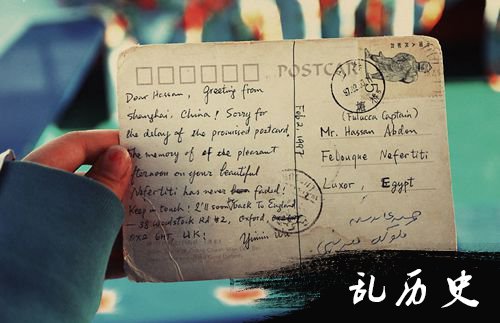 POSTCARD
Dear Hassan, Greeting from
Shanghai, China! Sorry for
the delay of the promised postcard,
The memory of of the pleasant
afternoon on your beautiful
Nefertiti has never faded!
Keep in touch! I'll soon back to England
— 38 Woodstock Rd #2, Oxford,
OX2 6HT, UK!
Yimin Wu
Feb. 2, 1997
(Fulucca Captain)
Mr. Hassan Abdon
Felouque Nefertiti
Luxor, Egypt
乱历史